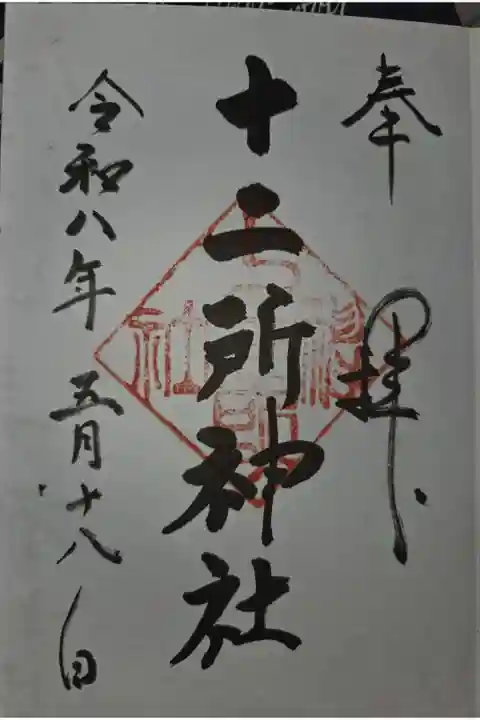 奉拝
十二所神社
令和八年五月十八日